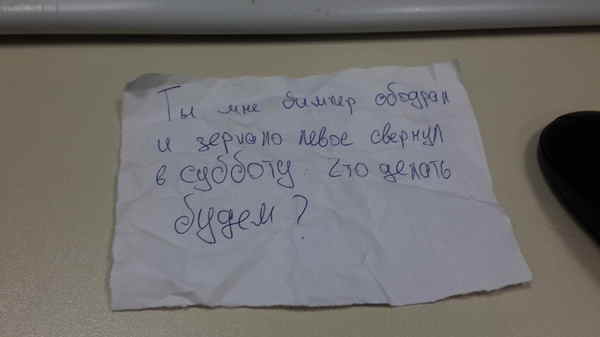 Ты мне бимпер ободрал
и зеркало левое свернул
в субботу. Что делать
будем?